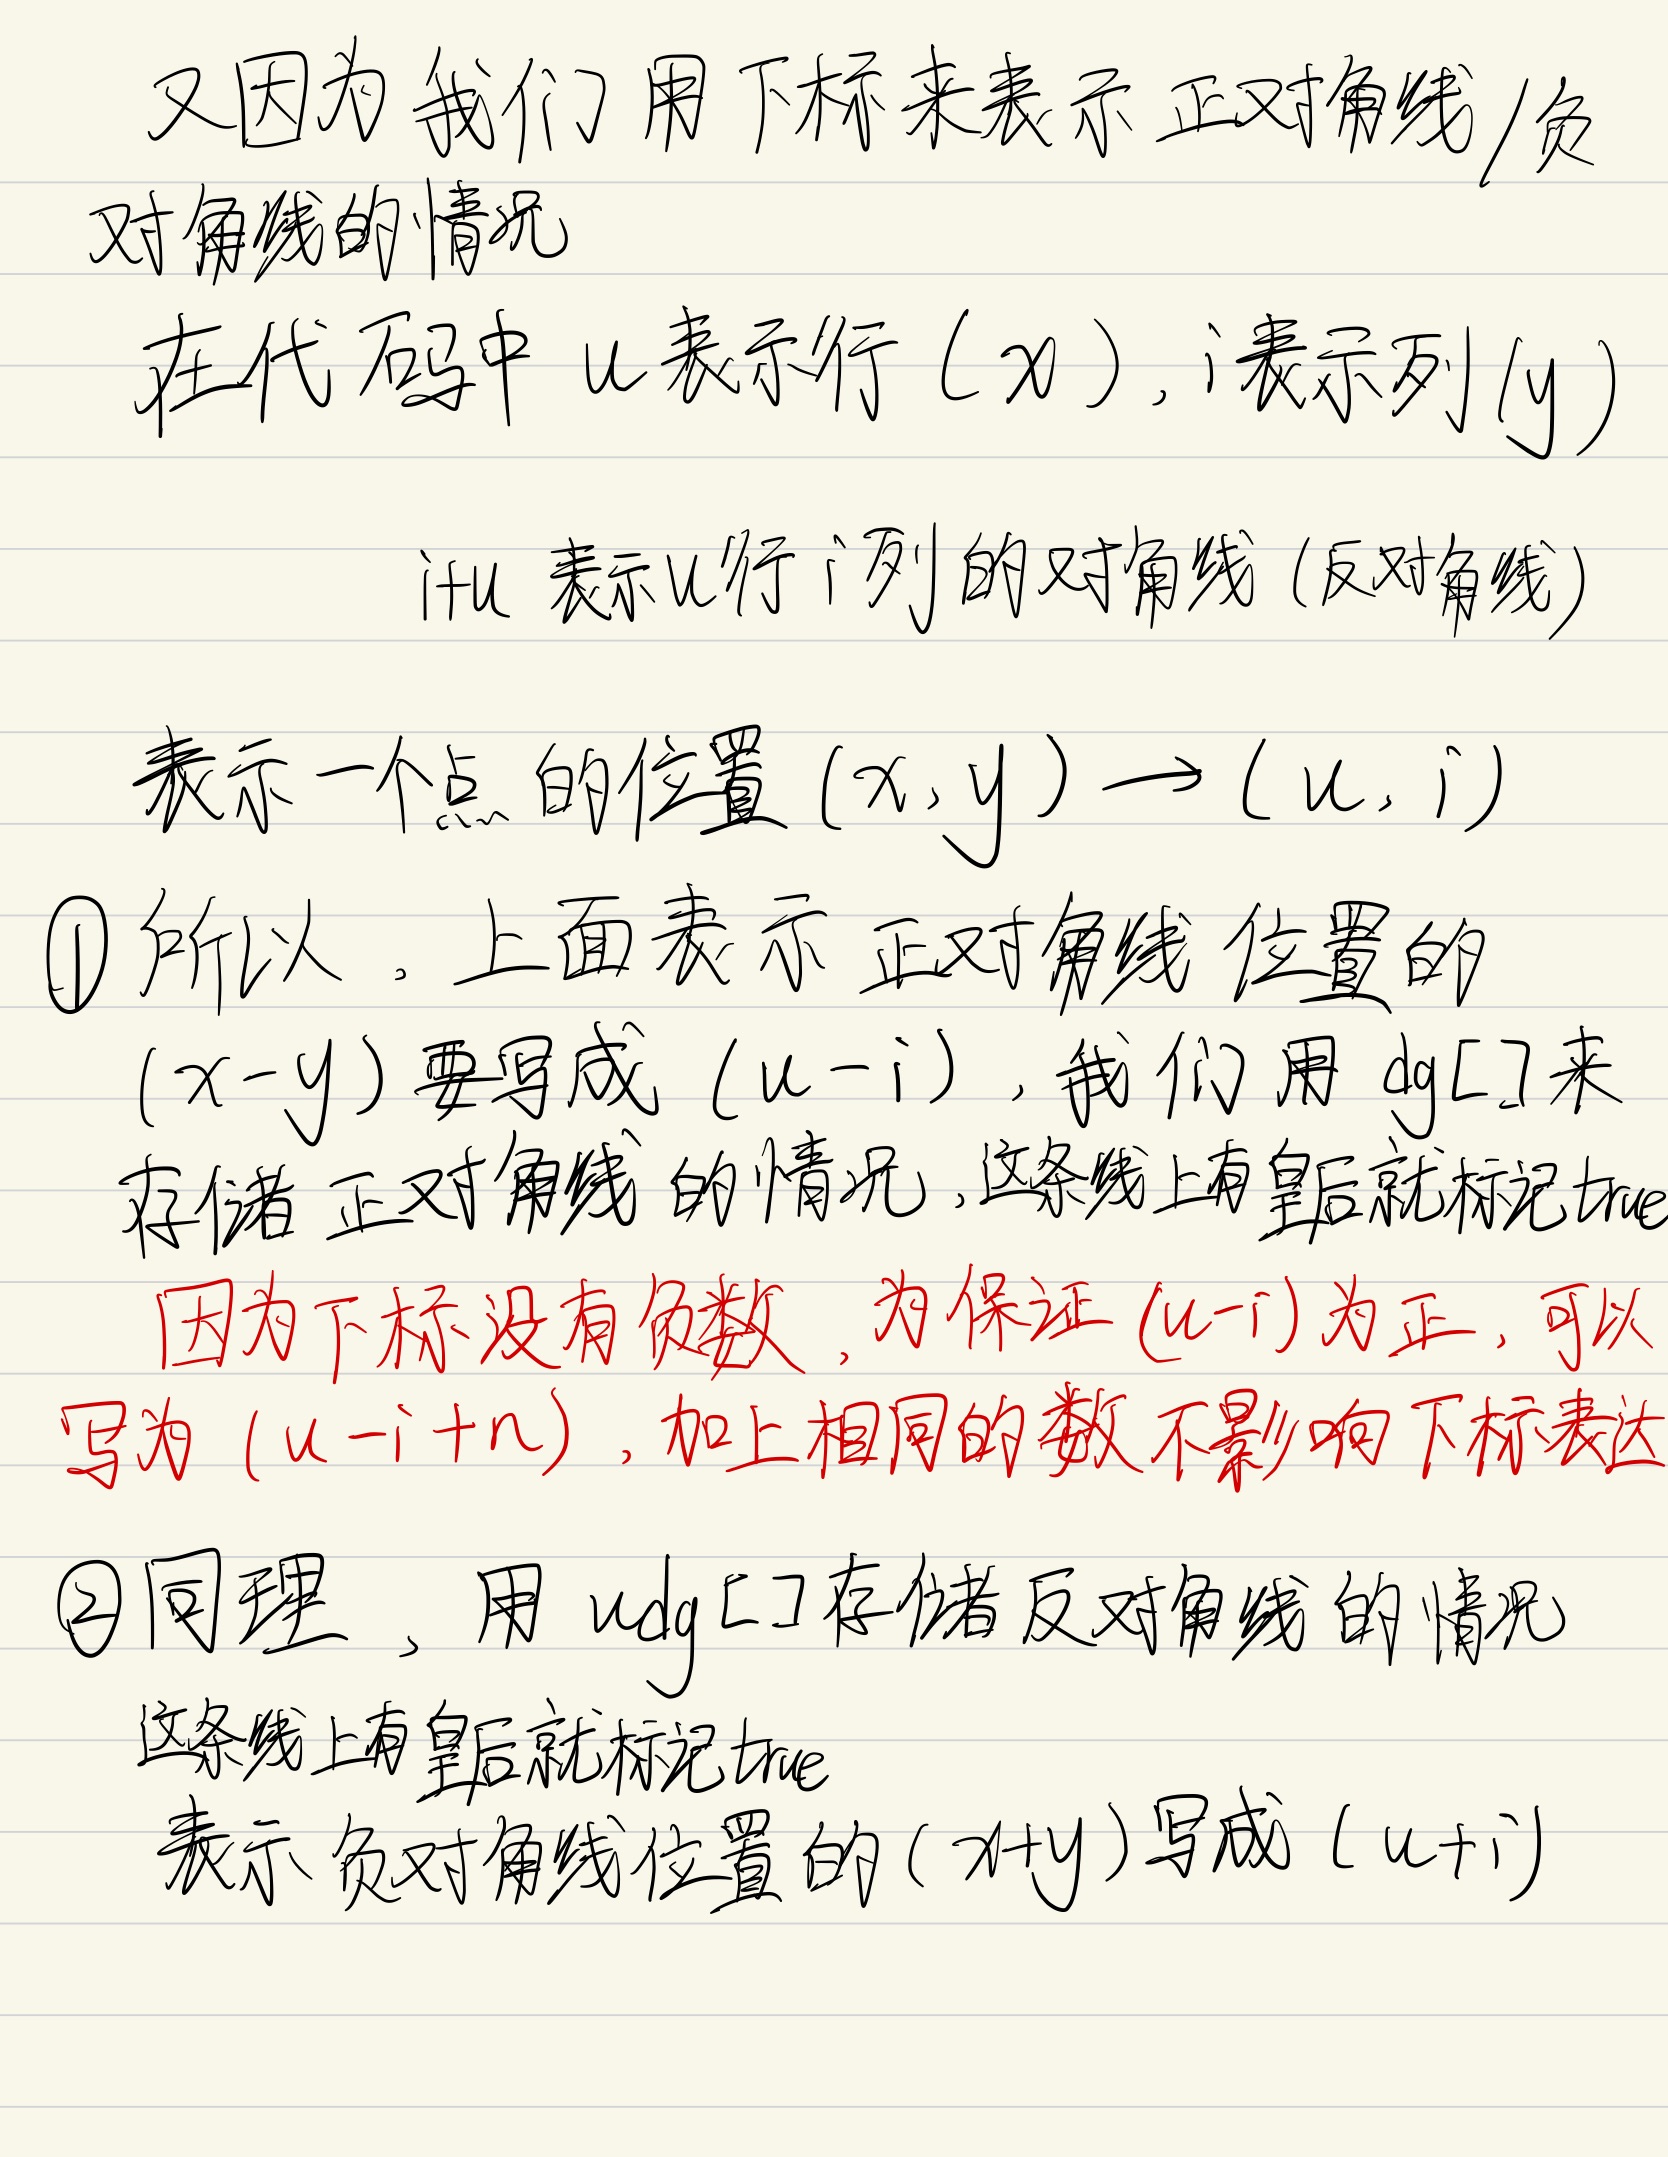 又因为我们用下标来表示正对角线/负
对角线的情况
在代码中u表示行(x),i表示列(y)
i+u 表示u行i列的对角线(反对角线)
表示一个点的位置(x,y)→(u,i)
①所以,上面表示正对角线位置的
(x-y)要写成(u-i),我们用dg[]来
存储正对角线的情况,这条线上有皇后就标记true
因为下标没有负数,为保证(u-i)为正,可以
写为(u-i+n),加上相同的数不影响下标表达
②同理,用udg[]存储反对角线的情况
这条线上有皇后就标记true
表示负对角线位置的(x+y)写成(u+i)